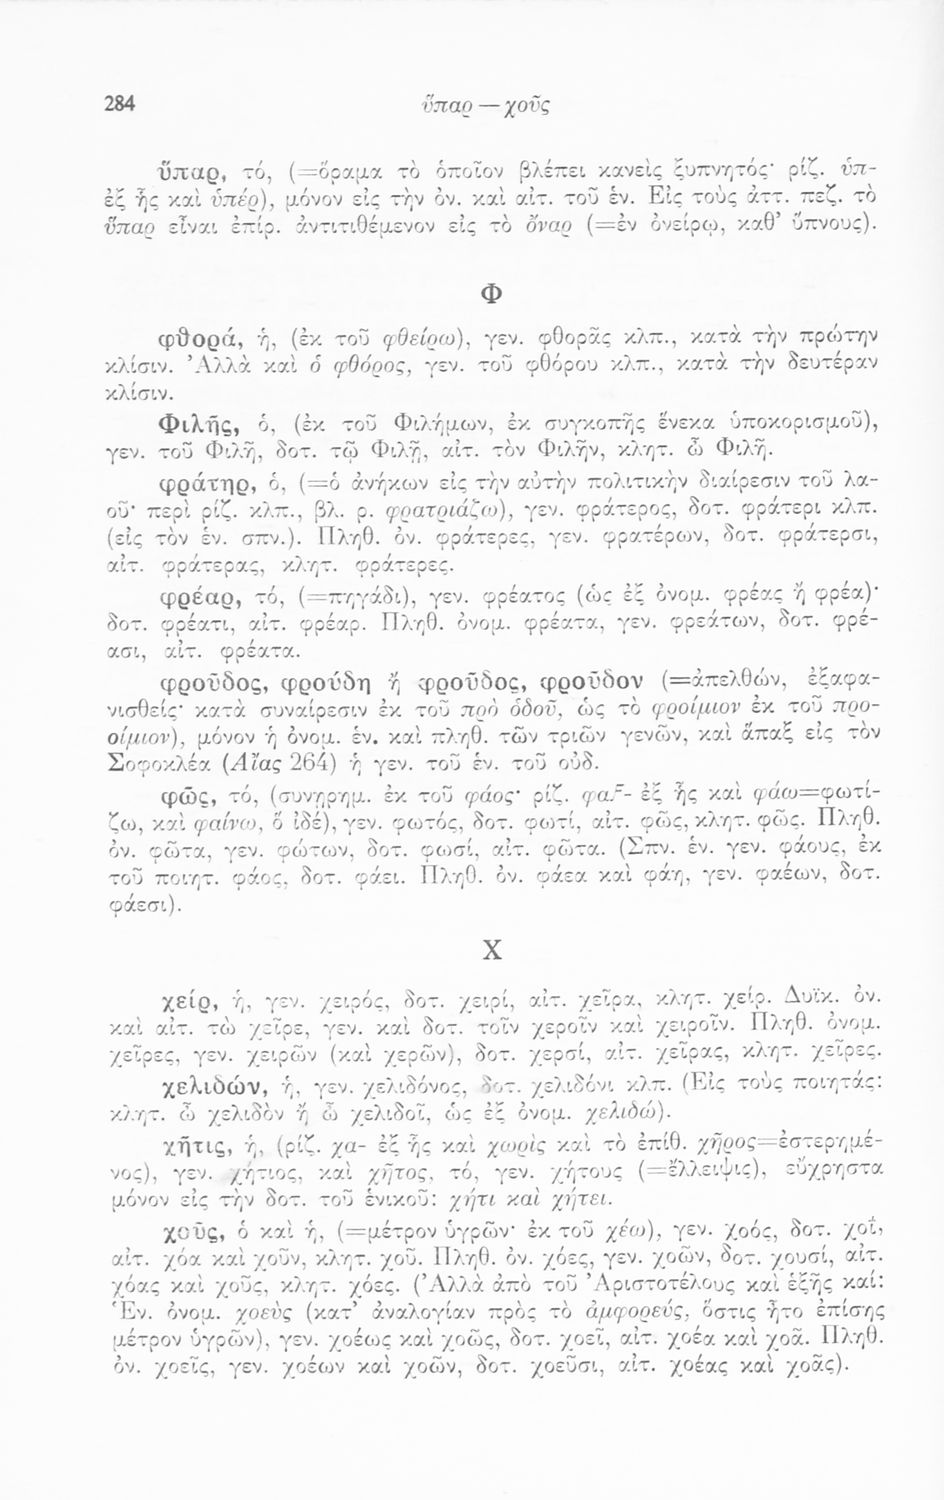 284 ὕπαρ — χοῦς
ὕπαρ, τό, (=ὅραμα τὸ ὁποῖον βλέπει κανεὶς ξυπνητός· ρίζ. ὑπ-
ἐξ ἧς καὶ ὑπέρ), μόνον εἰς τὴν ὀν. καὶ αἰτ. τοῦ ἑν. Εἰς τοὺς ἀττ. πεζ. τὸ
ὕπαρ εἶναι ἐπίρ. ἀντιτιθέμενον εἰς τὸ ὄναρ (=ἐν ὀνείρῳ, καθ’ ὕπνους).
Φ
φθορά, ἡ, (ἐκ τοῦ φθείρω), γεν. φθορᾶς κλπ., κατὰ τὴν πρώτην
κλίσιν. Ἀλλὰ καὶ ὁ φθόρος, γεν. τοῦ φθόρου κλπ., κατὰ τὴν δευτέραν
κλίσιν.
Φιλῆς, ὁ, (ἐκ τοῦ Φιλήμων, ἐκ συγκοπῆς ἕνεκα ὑποκορισμοῦ),
γεν. τοῦ Φιλῆ, δοτ. τῷ Φιλῇ, αἰτ. τὸν Φιλῆν, κλητ. ὦ Φιλῆ.
φράτηρ, ὁ, (=ὁ ἀνήκων εἰς τὴν αὐτὴν πολιτικὴν διαίρεσιν τοῦ λα-
οῦ· περὶ ρίζ. κλπ., βλ. ρ. φρατριάζω), γεν. φράτερος, δοτ. φράτερι κλπ.
(εἰς τὸν ἑν. σπν.). Πληθ. ὀν. φράτερες, γεν. φρατέρων, δοτ. φράτερσι,
αἰτ. φράτερας, κλητ. φράτερες.
φρέαρ, τό, (=πηγάδι), γεν. φρέατος (ὡς ἐξ ὀνομ. φρέας ἢ φρέα)·
δοτ. φρέατι, αἰτ. φρέαρ. Πληθ. ὀνομ. φρέατα, γεν. φρεάτων, δοτ. φρέ-
ασι, αἰτ. φρέατα.
φροῦδος, φρούδη ἢ φροῦδος, φροῦδον (=ἀπελθών, ἐξαφα-
νισθείς· κατὰ συναίρεσιν ἐκ τοῦ πρὸ ὁδοῦ, ὡς τὸ φροίμιον ἐκ τοῦ προ-
οίμιον), μόνον ἡ ὀνομ. ἑν. καὶ πληθ. τῶν τριῶν γενῶν, καὶ ἅπαξ εἰς τὸν
Σοφοκλέα (Αἴας 264) ἡ γεν. τοῦ ἑν. τοῦ οὐδ.
φῶς, τό, (συνῃρημ. ἐκ τοῦ φάος· ρίζ. φαF- ἐξ ἧς καὶ φάω=φωτί-
ζω, καὶ φαίνω, ὃ ἰδέ), γεν. φωτός, δοτ. φωτί, αἰτ. φῶς, κλητ. φῶς. Πληθ.
ὀν. φῶτα, γεν. φώτων, δοτ. φωσί, αἰτ. φῶτα. (Σπν. ἑν. γεν. φάους, ἐκ
τοῦ ποιητ. φάος, δοτ. φάει. Πληθ. ὀν. φάεα καὶ φάη, γεν. φαέων, δοτ.
φάεσι).
Χ
χείρ, ἡ, γεν. χειρός, δοτ. χειρί, αἰτ. χεῖρα, κλητ. χείρ. Δυϊκ. ὀν.
καὶ αἰτ. τὼ χεῖρε, γεν. καὶ δοτ. τοῖν χεροῖν καὶ χειροῖν. Πληθ. ὀνομ.
χεῖρες, γεν. χειρῶν (καὶ χερῶν), δοτ. χερσί, αἰτ. χεῖρας, κλητ. χεῖρες.
χελιδών, ἡ, γεν. χελιδόνος, δοτ. χελιδόνι κλπ. (Εἰς τοὺς ποιητάς:
κλητ. ὦ χελιδὸν ἢ ὦ χελιδοῖ, ὡς ἐξ ὀνομ. χελιδώ).
χῆτις, ἡ, (ρίζ. χα- ἐξ ἧς καὶ χωρὶς καὶ τὸ ἐπίθ. χῆρος=ἐστερημέ-
νος), γεν. χήτιος, καὶ χῆτος, τό, γεν. χήτους (=ἔλλειψις), εὔχρηστα
μόνον εἰς τὴν δοτ. τοῦ ἑνικοῦ: χήτι καὶ χήτει.
χοῦς, ὁ καὶ ἡ, (=μέτρον ὑγρῶν· ἐκ τοῦ χέω), γεν. χοός, δοτ. χοΐ,
αἰτ. χόα καὶ χοῦν, κλητ. χοῦ. Πληθ. ὀν. χόες, γεν. χοῶν, δοτ. χουσί, αἰτ.
χόας καὶ χοῦς, κλητ. χόες. (Ἀλλὰ ἀπὸ τοῦ Ἀριστοτέλους καὶ ἑξῆς καί:
Ἑν. ὀνομ. χοεὺς (κατ’ ἀναλογίαν πρὸς τὸ ἀμφορεύς, ὅστις ἦτο ἐπίσης
μέτρον ὑγρῶν), γεν. χοέως καὶ χοῶς, δοτ. χοεῖ, αἰτ. χοέα καὶ χοᾶ. Πληθ.
ὀν. χοεῖς, γεν. χοέων καὶ χοῶν, δοτ. χοεῦσι, αἰτ. χοέας καὶ χοᾶς).